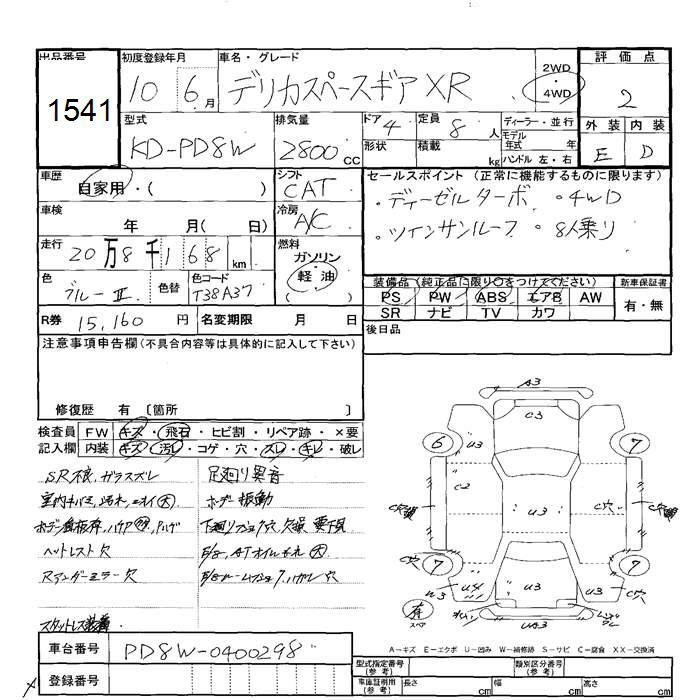 出品番号
1541
初度登録年月
10 6月
車名・グレード
デリカスペースギア XR
2WD
4WD
評価点
2
型式
KD-PD8W
排気量
2800cc
ドア 4
形状
定員 8人
積載 kg
ディーラー・並行
モデル年式 年
ハンドル 左・右
外装 内装
E D
車歴
自家用・( )
シフト
CAT
セールスポイント(正常に機能するものに限ります)
・ディーゼルターボ ・4WD
・ツインサンルーフ ・8人乗り
車検
年 月( 日)
冷房
A/C
走行
20万8千168km
燃料
ガソリン
軽油
色
ブルーII
色替
色コード
T38A37
装備品(純正品に限り○をつけてください)
新車保証書
PS PW ABS エアB AW
SR ナビ TV カワ
有・無
R券 15,160円
名変期限 月 日
後日品
注意事項申告欄(不具合内容等は具体的に記入して下さい)
修復歴 有 〔箇所 〕
検査員記入欄
FW キズ・飛石・ヒビ割・リペア跡・×要
内装 キズ・汚レ・コゲ・穴・スレ・キレ・破レ
足廻り異音
ボデー振動
ヘットレスト穴
スタットレス装着
A3
C3
6 U3 7
C2 U3 C穴
7 7
W3 U4 U3 U3 C穴
有
スペア
UA3
車台番号
PD8W-0400298
登録番号
A-キズ E-エクボ U-凹み W-補修跡 S-サビ C-腐食 XX-交換済
型式指定番号(参考)
類別区分番号(参考)
車庫証明用(参考)
長さ cm 幅 cm 高さ cm